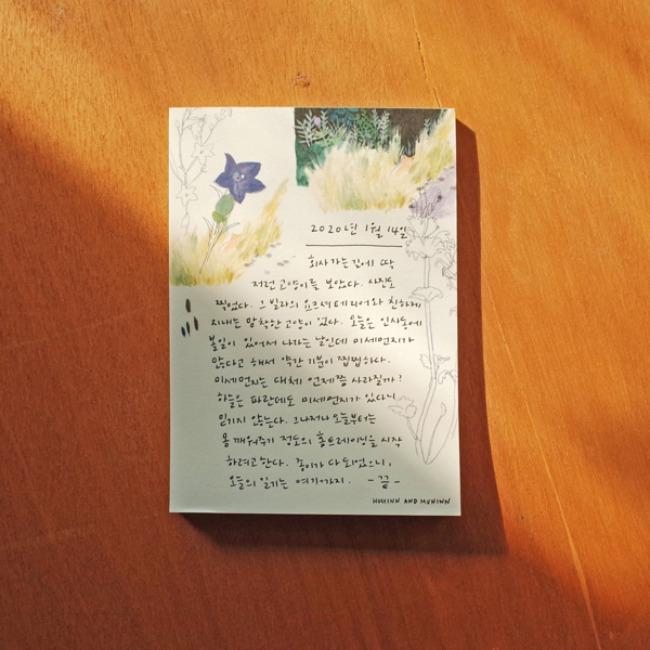 2020년 1월 14일
회사 가는 길에 딱
저런 고양이를 보았다. 사진도
찍었다. 그 빌라의 요크셔테리어와 친하게
지내는 망착한 고양이었다. 오늘은 인사동에
볼일이 있어서 나가는 날인데 미세먼지가
많다고 해서 약간 기분이 찝찝하다.
미세먼지는 대체 언제쯤 사라질까?
하늘은 파란데도 미세먼지가 있다니
믿기지 않는다. 그나저나 오늘부터는
몸 깨워주기 정도의 홈트레이닝을 시작
하려고 한다. 종이가 다 되었으니,
오늘의 일기는 여기까지. - 끝 -
HUKINN AND MUNINN